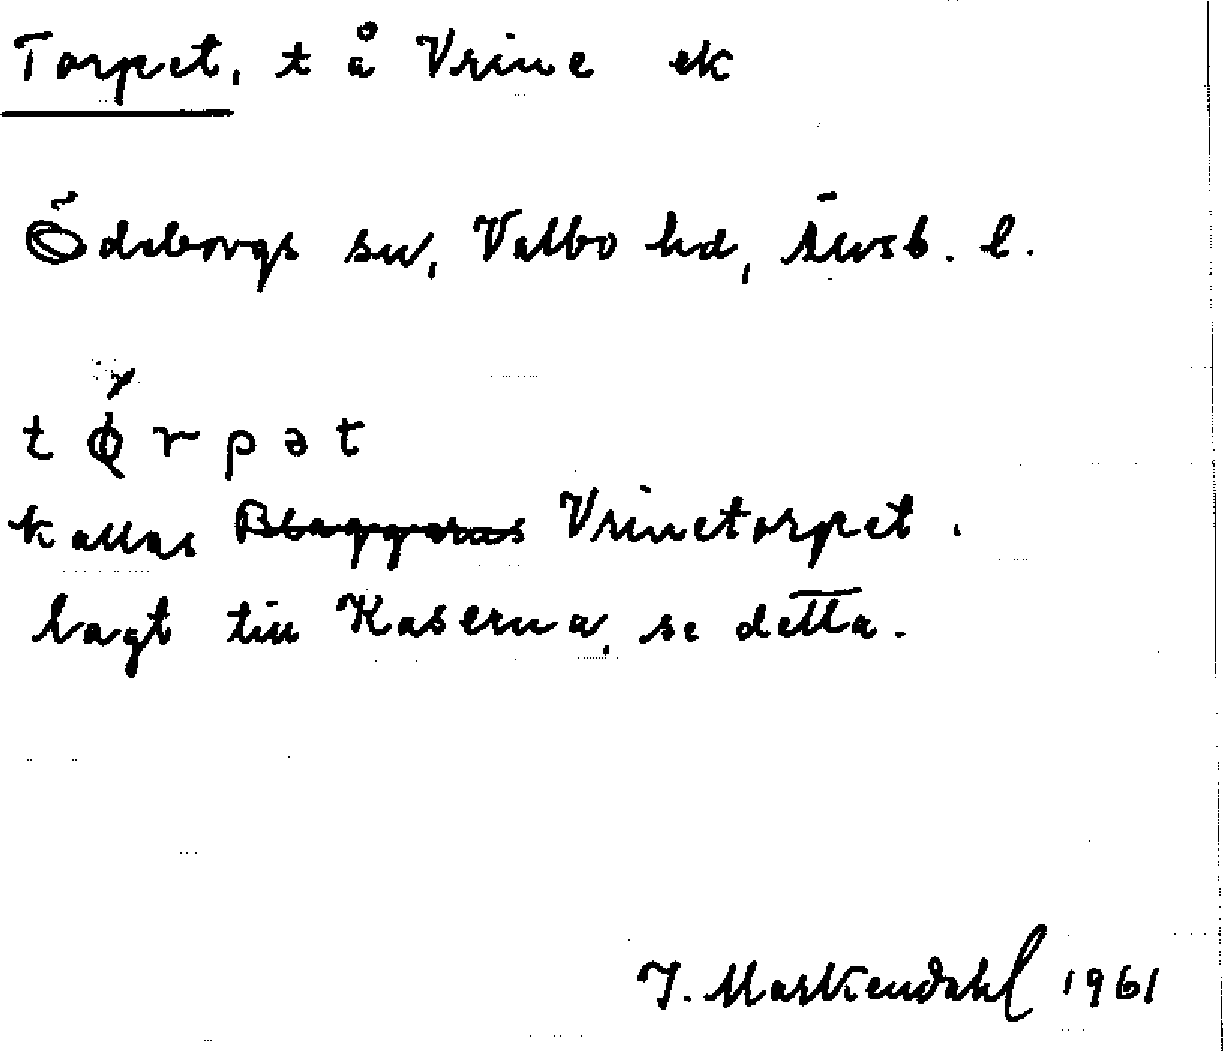 Torpet, t å Vrine ek
Ödeborgs sn, Valbo hd, Älvsb. l.
t ǫ̈ r p ə t
kallas Vrinetorpet.
lagt till Kaserna, se detta.
J. Markendahl 1961